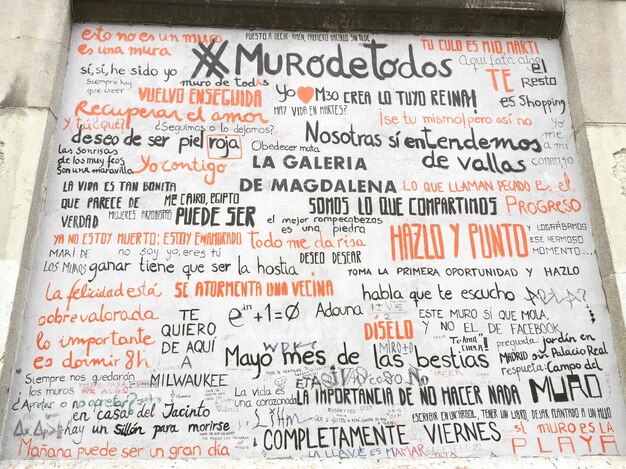 esto no es un muro
es una mura
PUESTO A DECIR AMEN, PREFIERO HACERLO SIN TILDE
#MURodeTodos
TU CULO ES MIO, MARTI
Aqui falta algo
sí, sí, he sido yo
muro de todas
Siempre hay
que creer
VUELVO ENSEGUIDA
Yo ♥ M30
CREA LO TUYO REINA!
TE
el
Resto
es Shopping
Recuperar el amor
HAY VIDA EN MARTES?
¡se tu mismo/pero así no
y tú ¿qué?
¿Seguimos o lo dejamos?
deseo de ser piel roja
Obedecer mata
Nosotras sí entendemos
de vallas
Yo
me
a mi
conmigo
las sonrisas
de los muy feos
son una maravilla
Yo contigo
LA GALERIA
DE MAGDALENA
LO QUE LLAMAN PECADO ES, el
PROGRESO
LA VIDA ES TAN BONITA
QUE PARECE DE
VERDAD
ME CAIRO, EGIPTO
MUJERES
PUEDE SER
SOMOS LO QUE COMPARTIMOS
el mejor rompecabezas
es una piedra
YA NO ESTOY MUERTO: ESTOY ENAMORADO
Todo me da risa
HAZLO Y PUNTO
Y LOGRÁBAMOS
ESE HERMOSO
MOMENTO...
MARI DE
LOS MUROS
no soy yo, eres tú
DESEO DESEAR
ganar tiene que ser la hostia
TOMA LA PRIMERA OPORTUNIDAD Y HAZLO
La felicidad está
sobrevalorada
SE ATORMENTA UNA VECINA
habla que te escucho
TE
QUIERO
DE AQUÍ
A
MILWAUKEE
e^iπ+1=0
Adouna
DISELO
ESTE MURO SÍ QUE MOLA,
Y NO EL DE FACEBOOK
lo importante
es dormir 8h
MIRÓ
"Te Amo"
pregunta: jardín en
MADRID sur Palacio Real
respuesta: Campo del
MURO
Mayo mes de las bestias
Siempre nos quedarán
los muros
La vida es
una corazonada
ETA
LA IMPORTANCIA DE NO HACER NADA
¿Apretar o no apretar?
en casa del Jacinto
hay un sillón para morirse
ESCRIBIR EN UN ARBOL, TENER UN LIBRO, DEJAR PLANTADO A UN HIJO
COMPLETAMENTE VIERNES
SI MURO ES LA
PLAYA
Mañana puede ser un gran día
LA LLAVE ES MAMAR